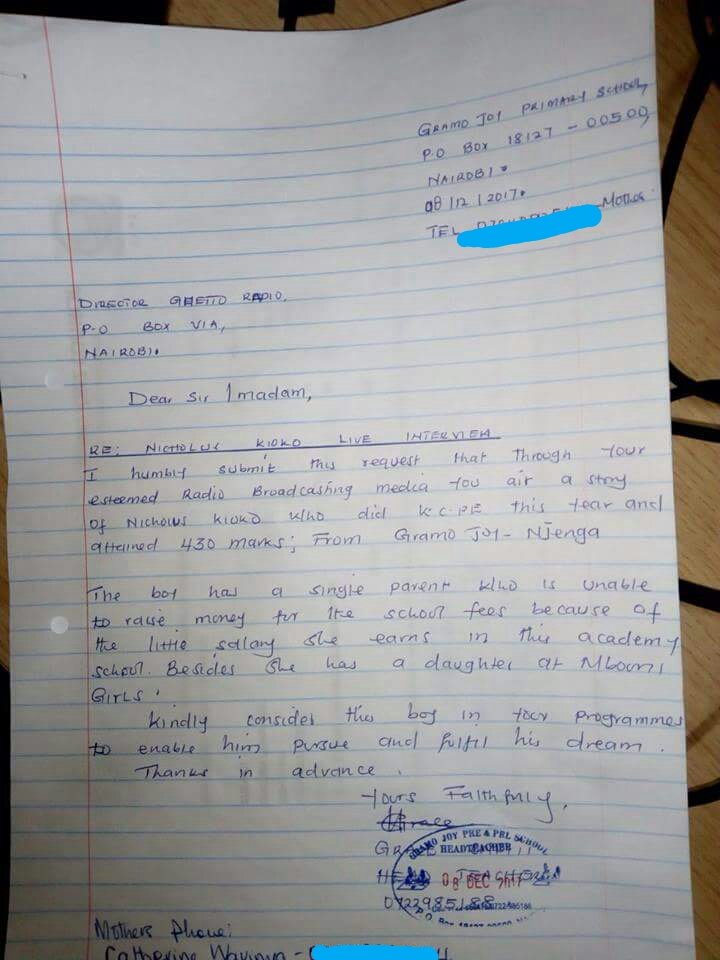 GRAMO JOY PRIMARY SCHOOL,
P.O BOX 18127 - 00500,
NAIROBI.
08/12/2017.
TEL - Mother
DIRECTOR GHETTO RADIO,
P.O BOX VIA,
NAIROBI.
Dear Sir / madam,
RE: NICHOLUS KIOKO LIVE INTERVIEW
I humbly submit this request that through your
esteemed Radio Broadcasting media you air a story
of Nicholus Kioko who did K.C.PE this year and
attained 430 marks; From Gramo Joy - Njenga
The boy has a single parent who is unable
to raise money for the school fees because of
the little salary she earns in this academy
school. Besides she has a daughter at Mbooni
Girls.
Kindly consider this boy in your programmes
to enable him pursue and fulfil his dream.
Thanks in advance.
Yours Faithfully,
Grace
GRAMO JOY PRE & PRI. SCHOOL
HEADTEACHER
HEAD TEACHER
08 DEC 2017
0722985188
Mothers Phone:
Catherine Wavinya -